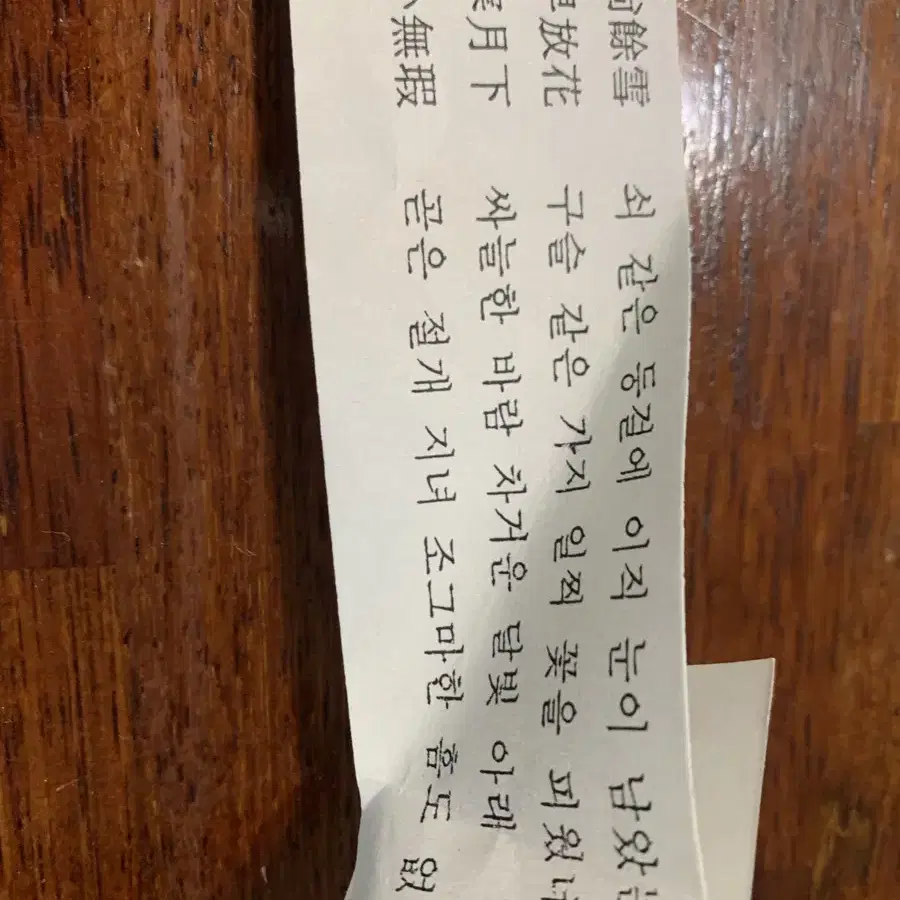 餘雪 쇠 같은 등걸에 이직 눈이 남았
放花 구슬 같은 가지 일찍 꽃을 피웠
月下 싸늘한 바람 차거운 달빛 아래
無瑕 곧은 절개 지녀 조그마한 흠도 없